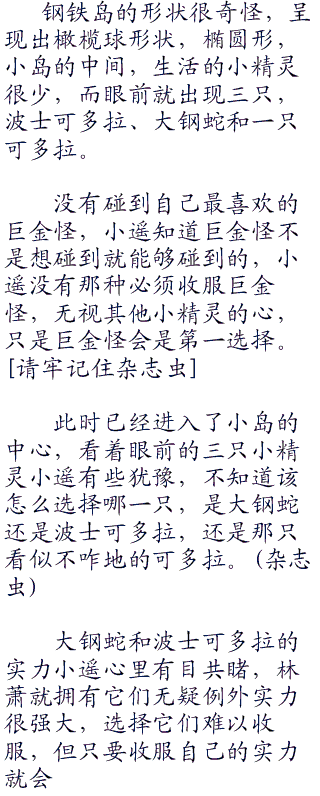 钢铁岛的形状很奇怪，呈
现出橄榄球形状，椭圆形，
小岛的中间，生活的小精灵
很少，而眼前就出现三只，
波士可多拉、大钢蛇和一只
可多拉。
没有碰到自己最喜欢的
巨金怪，小遥知道巨金怪不
是想碰到就能够碰到的，小
遥没有那种必须收服巨金
怪，无视其他小精灵的心，
只是巨金怪会是第一选择。
[请牢记住杂志虫]
此时已经进入了小岛的
中心，看着眼前的三只小精
灵小遥有些犹豫，不知道该
怎么选择哪一只，是大钢蛇
还是波士可多拉，还是那只
看似不咋地的可多拉。(杂志
虫)
大钢蛇和波士可多拉的
实力小遥心里有目共睹，林
萧就拥有它们无疑例外实力
很强大，选择它们难以收
服，但只要收服自己的实力
就会